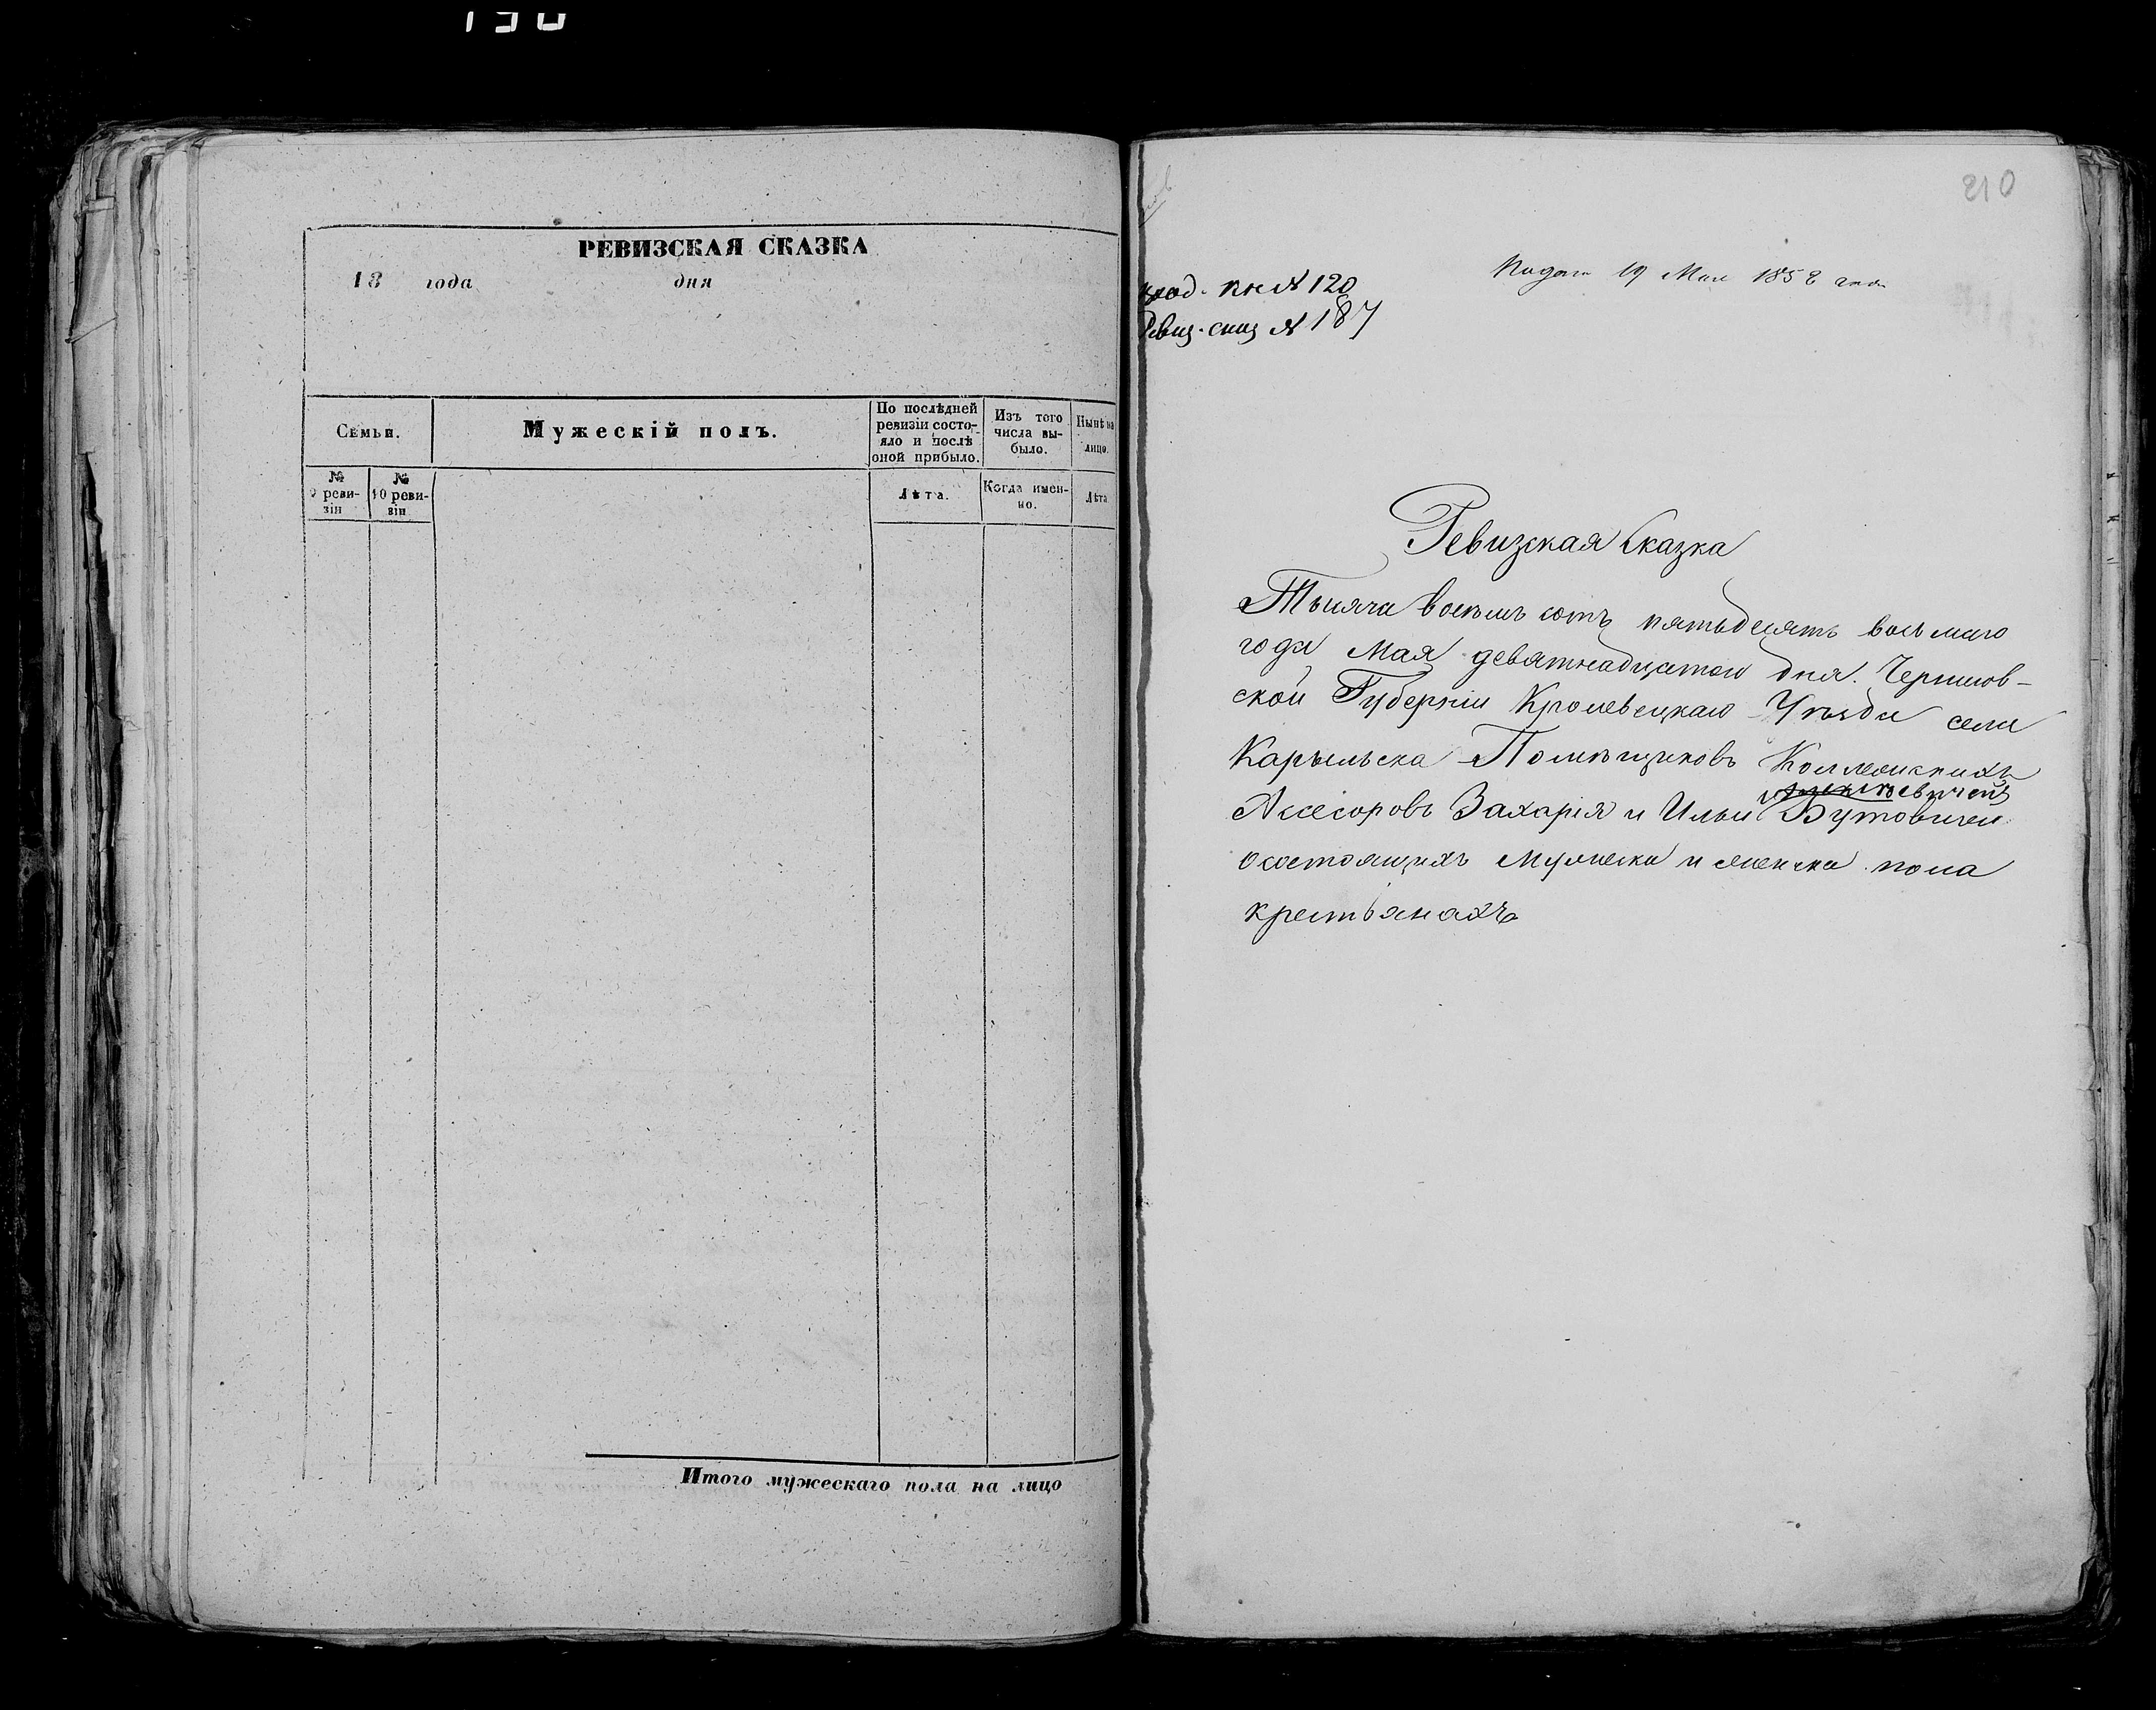 РЕВИЗСКАЯ СКАЗКА
18 года дня
Семьи.
Мужескій полъ.
По послѣдней
ревизіи состо-
яло и послѣ
оной прибыло.
Изъ того
числа вы-
было.
Нынѣ на
лицо.
№
9 реви-
зіи
№
10 реви-
зіи
Лѣта.
Когда имен-
но.
Лѣта
Итого мужескаго пола на лицо
210
Подана 19 Мая 1858 года
вход. кн № 120
Ревиз. спис № 187
Ревизская Сказка
Тысяча восемь сотъ пятьдесятъ восьмаго
года Мая девятнадцатаго дня. Чернигов-
ской Губерніи Кролевецкаго Уѣзда села
Карыльска Помѣщиковъ Коллежскихъ
Асесоровъ Захарія и Ильи Бутовичей
о состоящихъ мужеска и женска пола
крестьянахъ